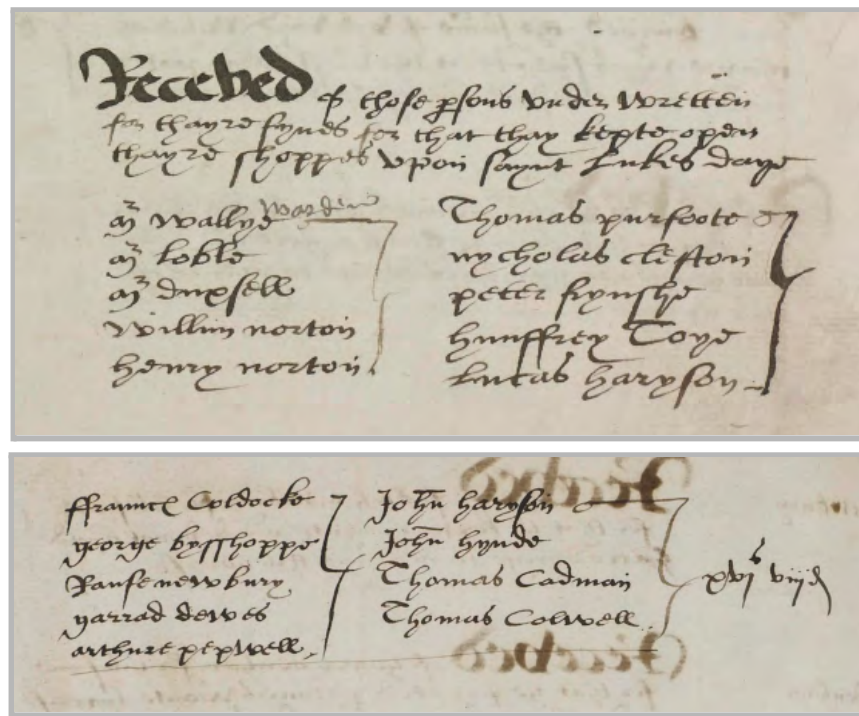 Receved of those psons vnder wretten
for thayre fynes for that thay kepte open
thayre shoppes vpon saynt Lukes daye
mr wallye warden
mr loble
mr duxsell
Willim norton
henry norton
Thomas purfoote
nycholas clefton
peter frynshe
hunffrey Toye
Lucas haryson
ffraunces Coldocke
george bysshoppe
Raufe newbury
garrad dewes
arthure pepwell
John haryson
John hynde
Thomas Cadman
Thomas Colwell
xvjs viijd